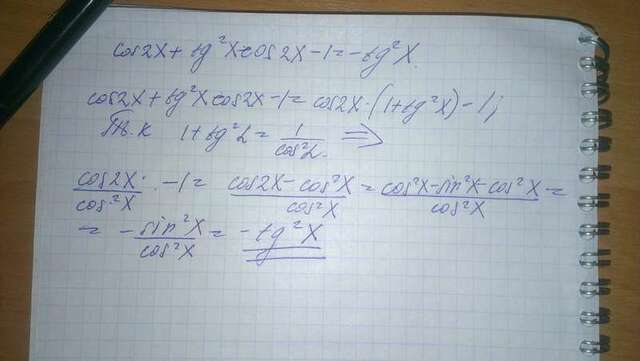 cos2x + tg²x cos2x - 1 = -tg²x.
cos2x + tg²x cos2x - 1 = cos2x · (1 + tg²x) - 1;
Т.к 1 + tg²α = 1/cos²α. ⟹
cos2x/cos²x · - 1 = (cos2x - cos²x)/cos²x = (cos²x - sin²x - cos²x)/cos²x =
= -sin²x/cos²x = -tg²x